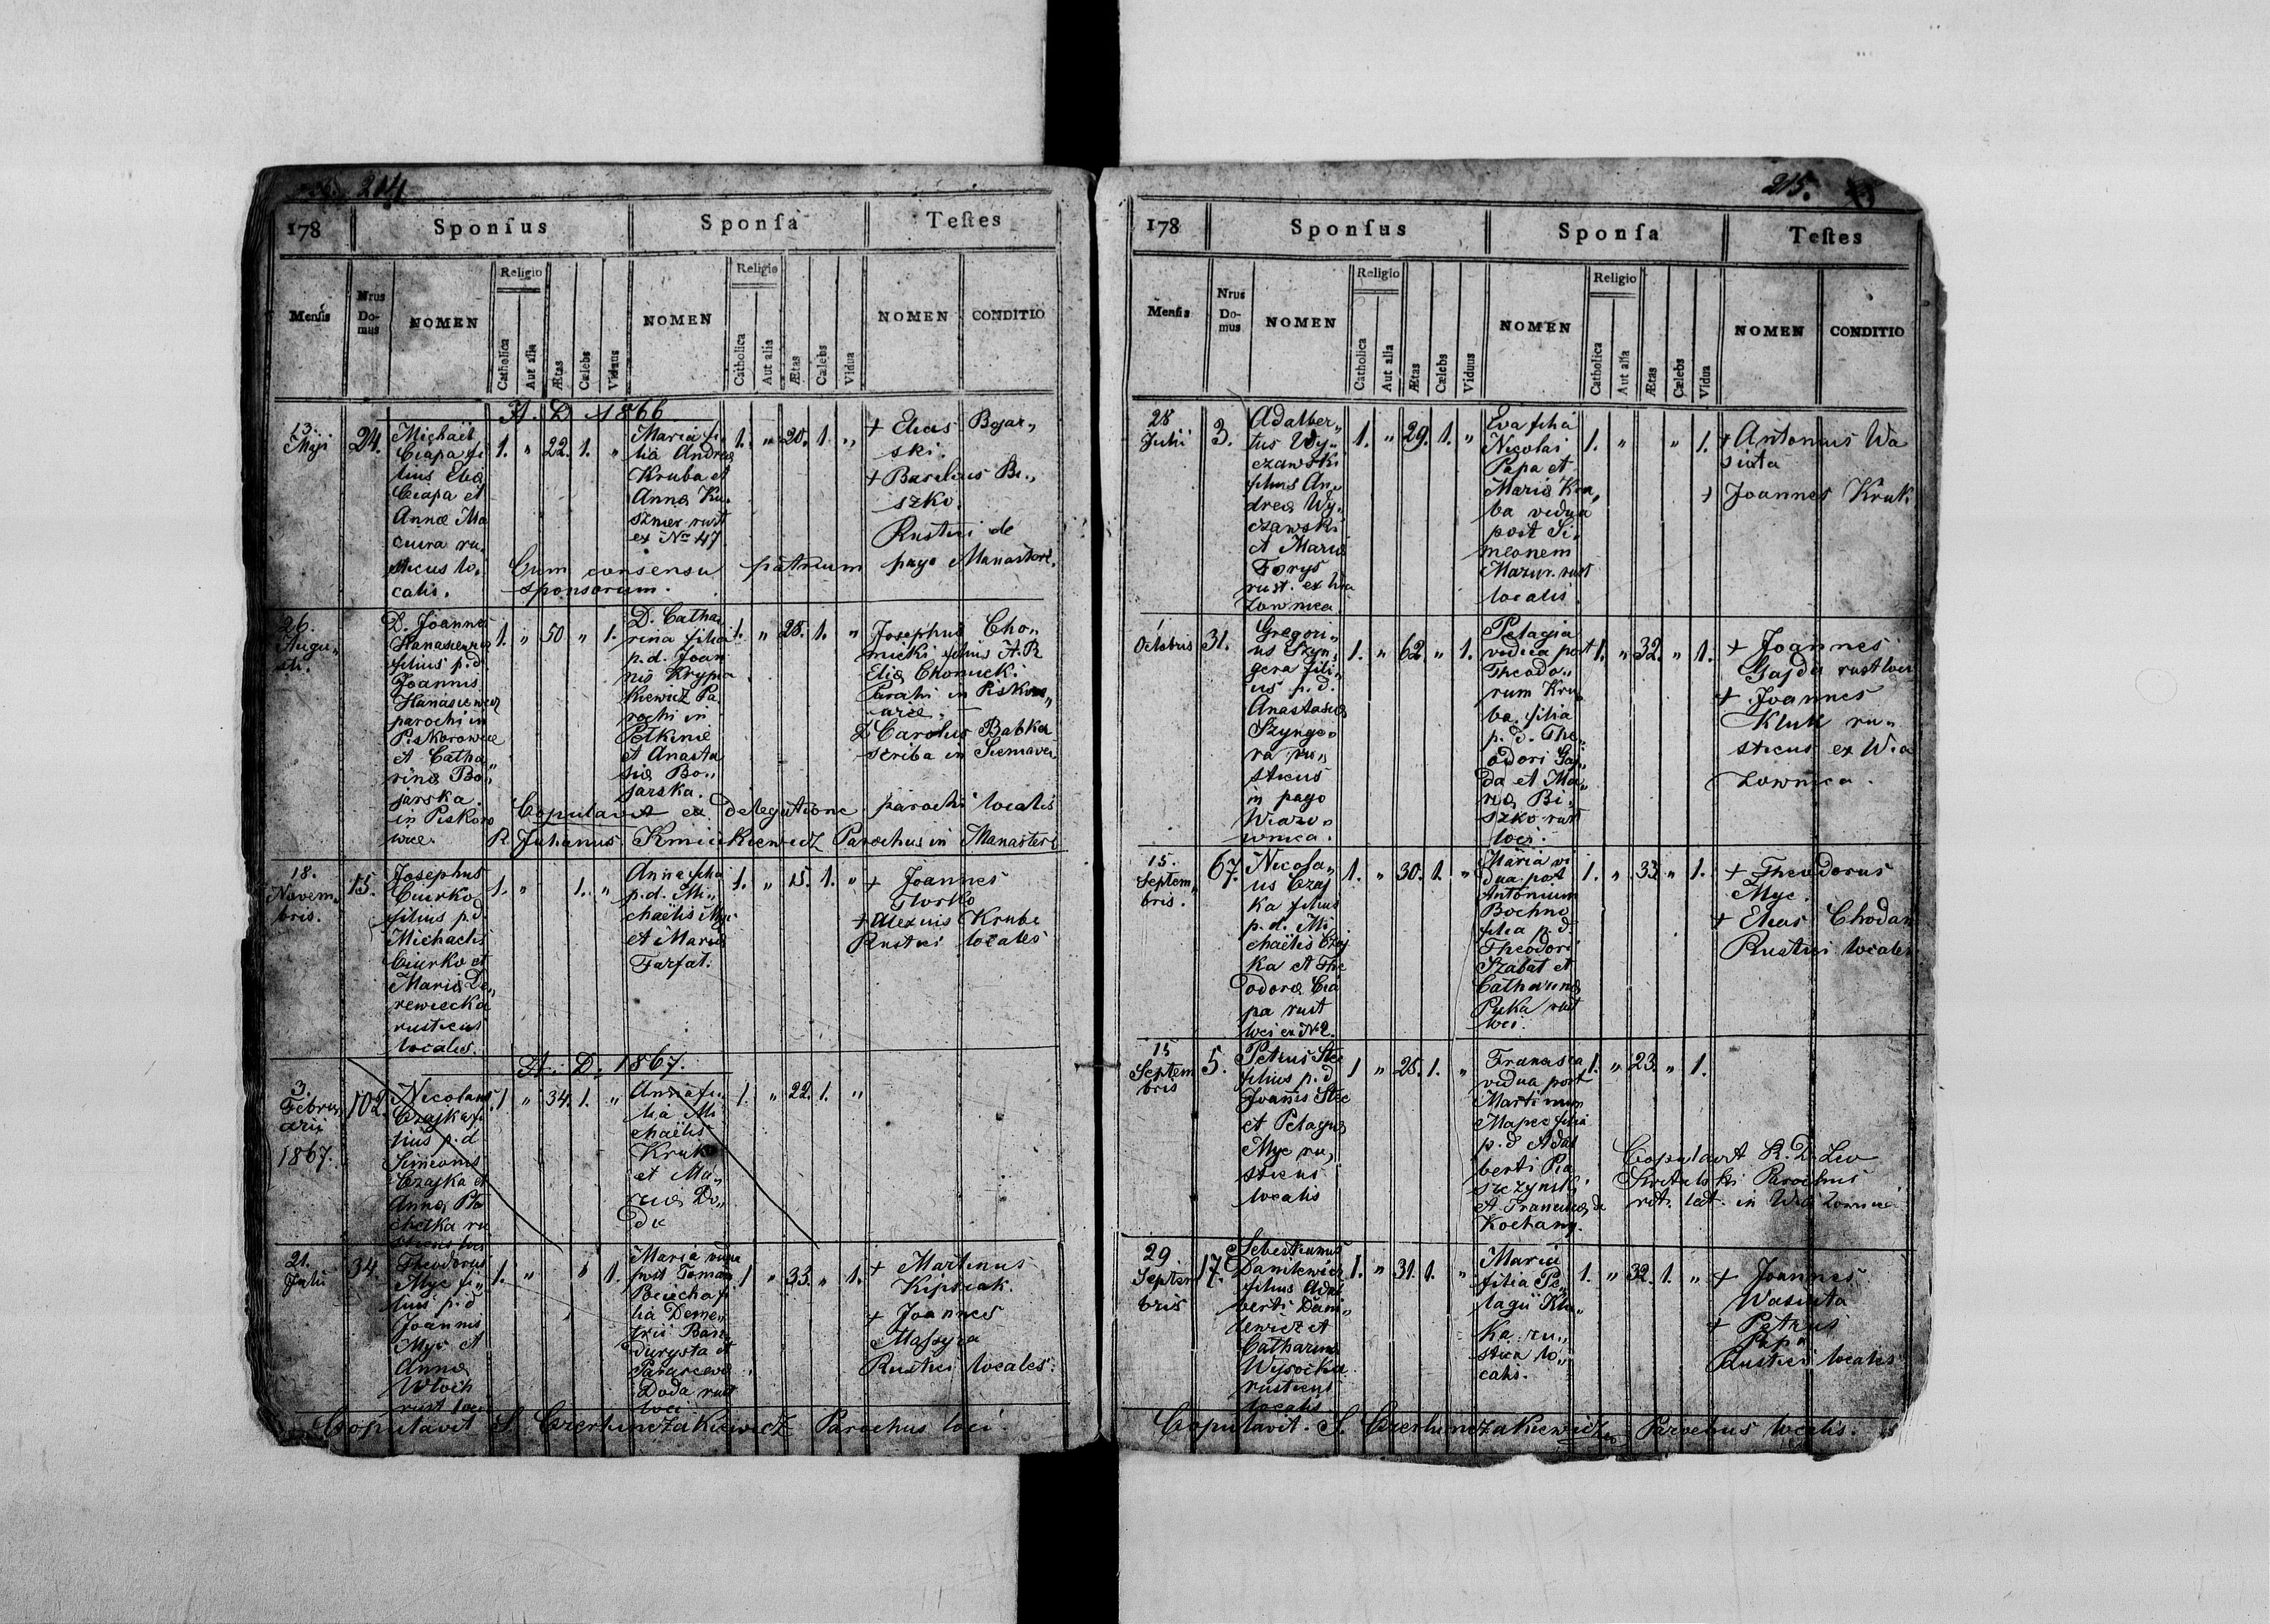 214
178
Sponſus
Sponſa
Teſtes
Menſis
Nrus Do-mus
NOMEN
Religio
Catholica
Aut alia
Ætas
Cælebs
Viduus
NOMEN
Religio
Catholica
Aut alia
Ætas
Cælebs
Vidua
NOMEN
CONDITIO
A. D. 1866
13.
Maji
24.
Michaël
Ciapa fi
lius Eliæ
Ciapa et
Annæ Ma
cura ru.
sticus lo.
calis.
1. " 22. 1. "
Maria fi.
lia Andreæ
Kruba et
Annæ Ku.
sznier rust
ex Nro 47
1. " 20. 1. "
+ Elias Bojar„
ski.
+ Basilius Bi„
szko.
Rustici de
pago Manasterz.
Cum consensu patrum
sponsorum.
26.
Augu„
sti.
D. Joannes
Hanasiewicz
filius p.d.
Joannis
Hanasiewicz
parochi in
Piskorowice
et Catha„
rinæ Bo„
jarska.
in Piskoro
wice.
1. " 50 " 1.
D. Catha
rina filia
p.d. Joan
nis Krypia
kiewicz Pa
rochi in
Pełkinie
et Anasta
siæ Bo„
jarska.
1. " 28. 1. "
Josephus Cho„
micki filius A.R
Eliæ Chomicki
Parochi in Piskoro„
wice.
D Carolus Babka
scriba in Sieniava
Copulavit ex delegatione parochi localis
R. Julianus Kmicikiewicz Parochus in Manasterz
18.
Novem„
bris.
15.
Josephus
Ciurko
filius p.d.
Michaelis
Ciurko et
Mariæ De„
rewiecka
rusticus
localis.
1. " 1. "
Anna filia
p.d. Mi„
chaëlis Myc
et Mariæ
Farfat.
1. " 15. 1. "
+ Joannes
+ Alexius Kruba
Rustici locales
A. D. 1867.
3.
Februa
arii
1867.
102.
Nicolaus
Czajka fi
lius p.d
Simeonis
Czajka et
Annæ
ru
sticus loci
1 " 34. 1. "
Anna fi„
lia Mi
chaëlis
Kruk
et Ma„
riæ Do„
da
1. " 22. 1. "
21.
Julii
34.
Theodorus
Myc fi„
lius p.d
Joannis
Myc et
Annæ
Włoch
rust loci
1. " " 1.
Maria vidua
post Toman
lia Deme„
trii Ban
durysta et
Paraseva
Doda rust
loci
1 " 33. " 1.
+ Martinus
Kijsiak.
+ Joannes
Massyra
Rustici locales.
Copulavit S. Czerlunczakiewicz Parochus loci.
215.
178
Sponſus
Sponſa
Teſtes
Menſis
Nrus Do-mus
NOMEN
Religio
Catholica
Aut alia
Ætas
Cælebs
Viduus
NOMEN
Religio
Catholica
Aut alia
Ætas
Cælebs
Vidua
NOMEN
CONDITIO
28
Julii
3.
Adalber„
tus Wy„
czawski
filius An„
dreæ Wy„
czawski
et Mariæ
Forys
rust. ex Wia
zownica
1. " 29. 1. "
Eva filia
Nicolai
Papa et
Mariæ Kru„
ba vidua
post Si„
meonem
Mazur. rust
localis.
1. " " 1.
+ Antonius Wa
siuta
+ Joannes Kruk.
1
Octobris
31.
Gregori„
us Szyn„
gera fili„
us p.d.
Anastasiæ
Szynge„
ra ru„
sticus
in pago
Wiazo„
wnica.
1. " 62. " 1.
Pelagia
vidua post
Theodo„
rum Kru„
ba. filia
p.d. The„
odori Gaj„
da et Ma„
riæ Bi„
szko rust
loci.
1. " 32. " 1.
+ Joannes
Gajda rust loci
+ Joannes
Kluk ru„
sticus ex Wia
zownica.
15.
Septem„
bris.
67.
Nicola„
us Czaj
ka filius
p.d. Mi„
chaëlis Czaj
ka et The
odoræ Cia
pa rust
loci ex N 2.
1. " 30. 1. "
Maria vi
dua post
Antonium
Bochno
filia p.d.
Theodori
Szabat et
Catharinæ
Puka rust
loci.
1. " 33. " 1.
+ Theodorus
Myc.
+ Elias Chodan
Rustici locales
15
Septem
bris
5.
Petrus Stec
filius p.d
Joannis Stec
et Pelagiæ
Myc ru„
sticus
localis
1 " 25. 1. "
Francisca
vidua post
Martinum
Mapec filia
p.d Adal
berti Pia
szczynski
et Franciscæ de
Kochany.
1. " 23. " 1.
Copulavit R.D. Leo
Parochus
rit. lat. in Wiązownica
29
Septem
bris
17.
Sebestianus
Danilewicz
filius Adal
berti Dani„
lewicz et
Catharinæ
Wysocka
rusticus
localis.
1. " 31. 1. "
Maria
filia Pe„
lagii Klu„
ka ru„
stica lo„
calis.
1. " 32. 1. "
+ Joannes
Wasiuta
+ Petrus
Papa
Rustici locales
Copulavit. S. Czerlunczakiewicz Parochus localis.